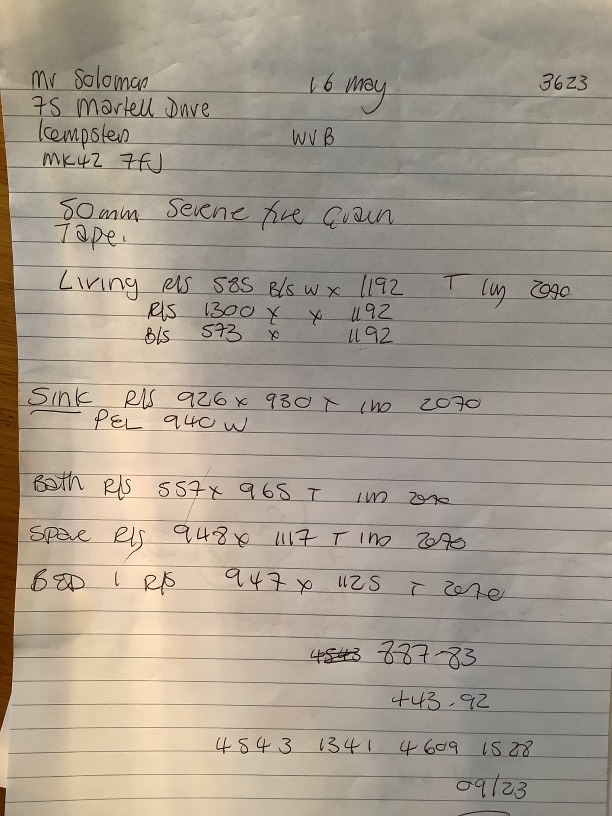 Mr Soloman 16 May 3623
75 Martell Drive
Kempston WVB
MK42 7FJ
50mm Serene Fine Grain
Tape.
Living R/S 585 B/S W x 1192 T 2070
R/S 1300 x x 1192
B/S 573 x 1192
Sink R/S 926 x 930 T 2070
940 W
Bath R/S 557 x 965 T
Spare R/S 948 x 1117 T 2070
BED 1 R/S 947 x 1125 T 2070
887-83
443.92
4543 1341 4609
09/23